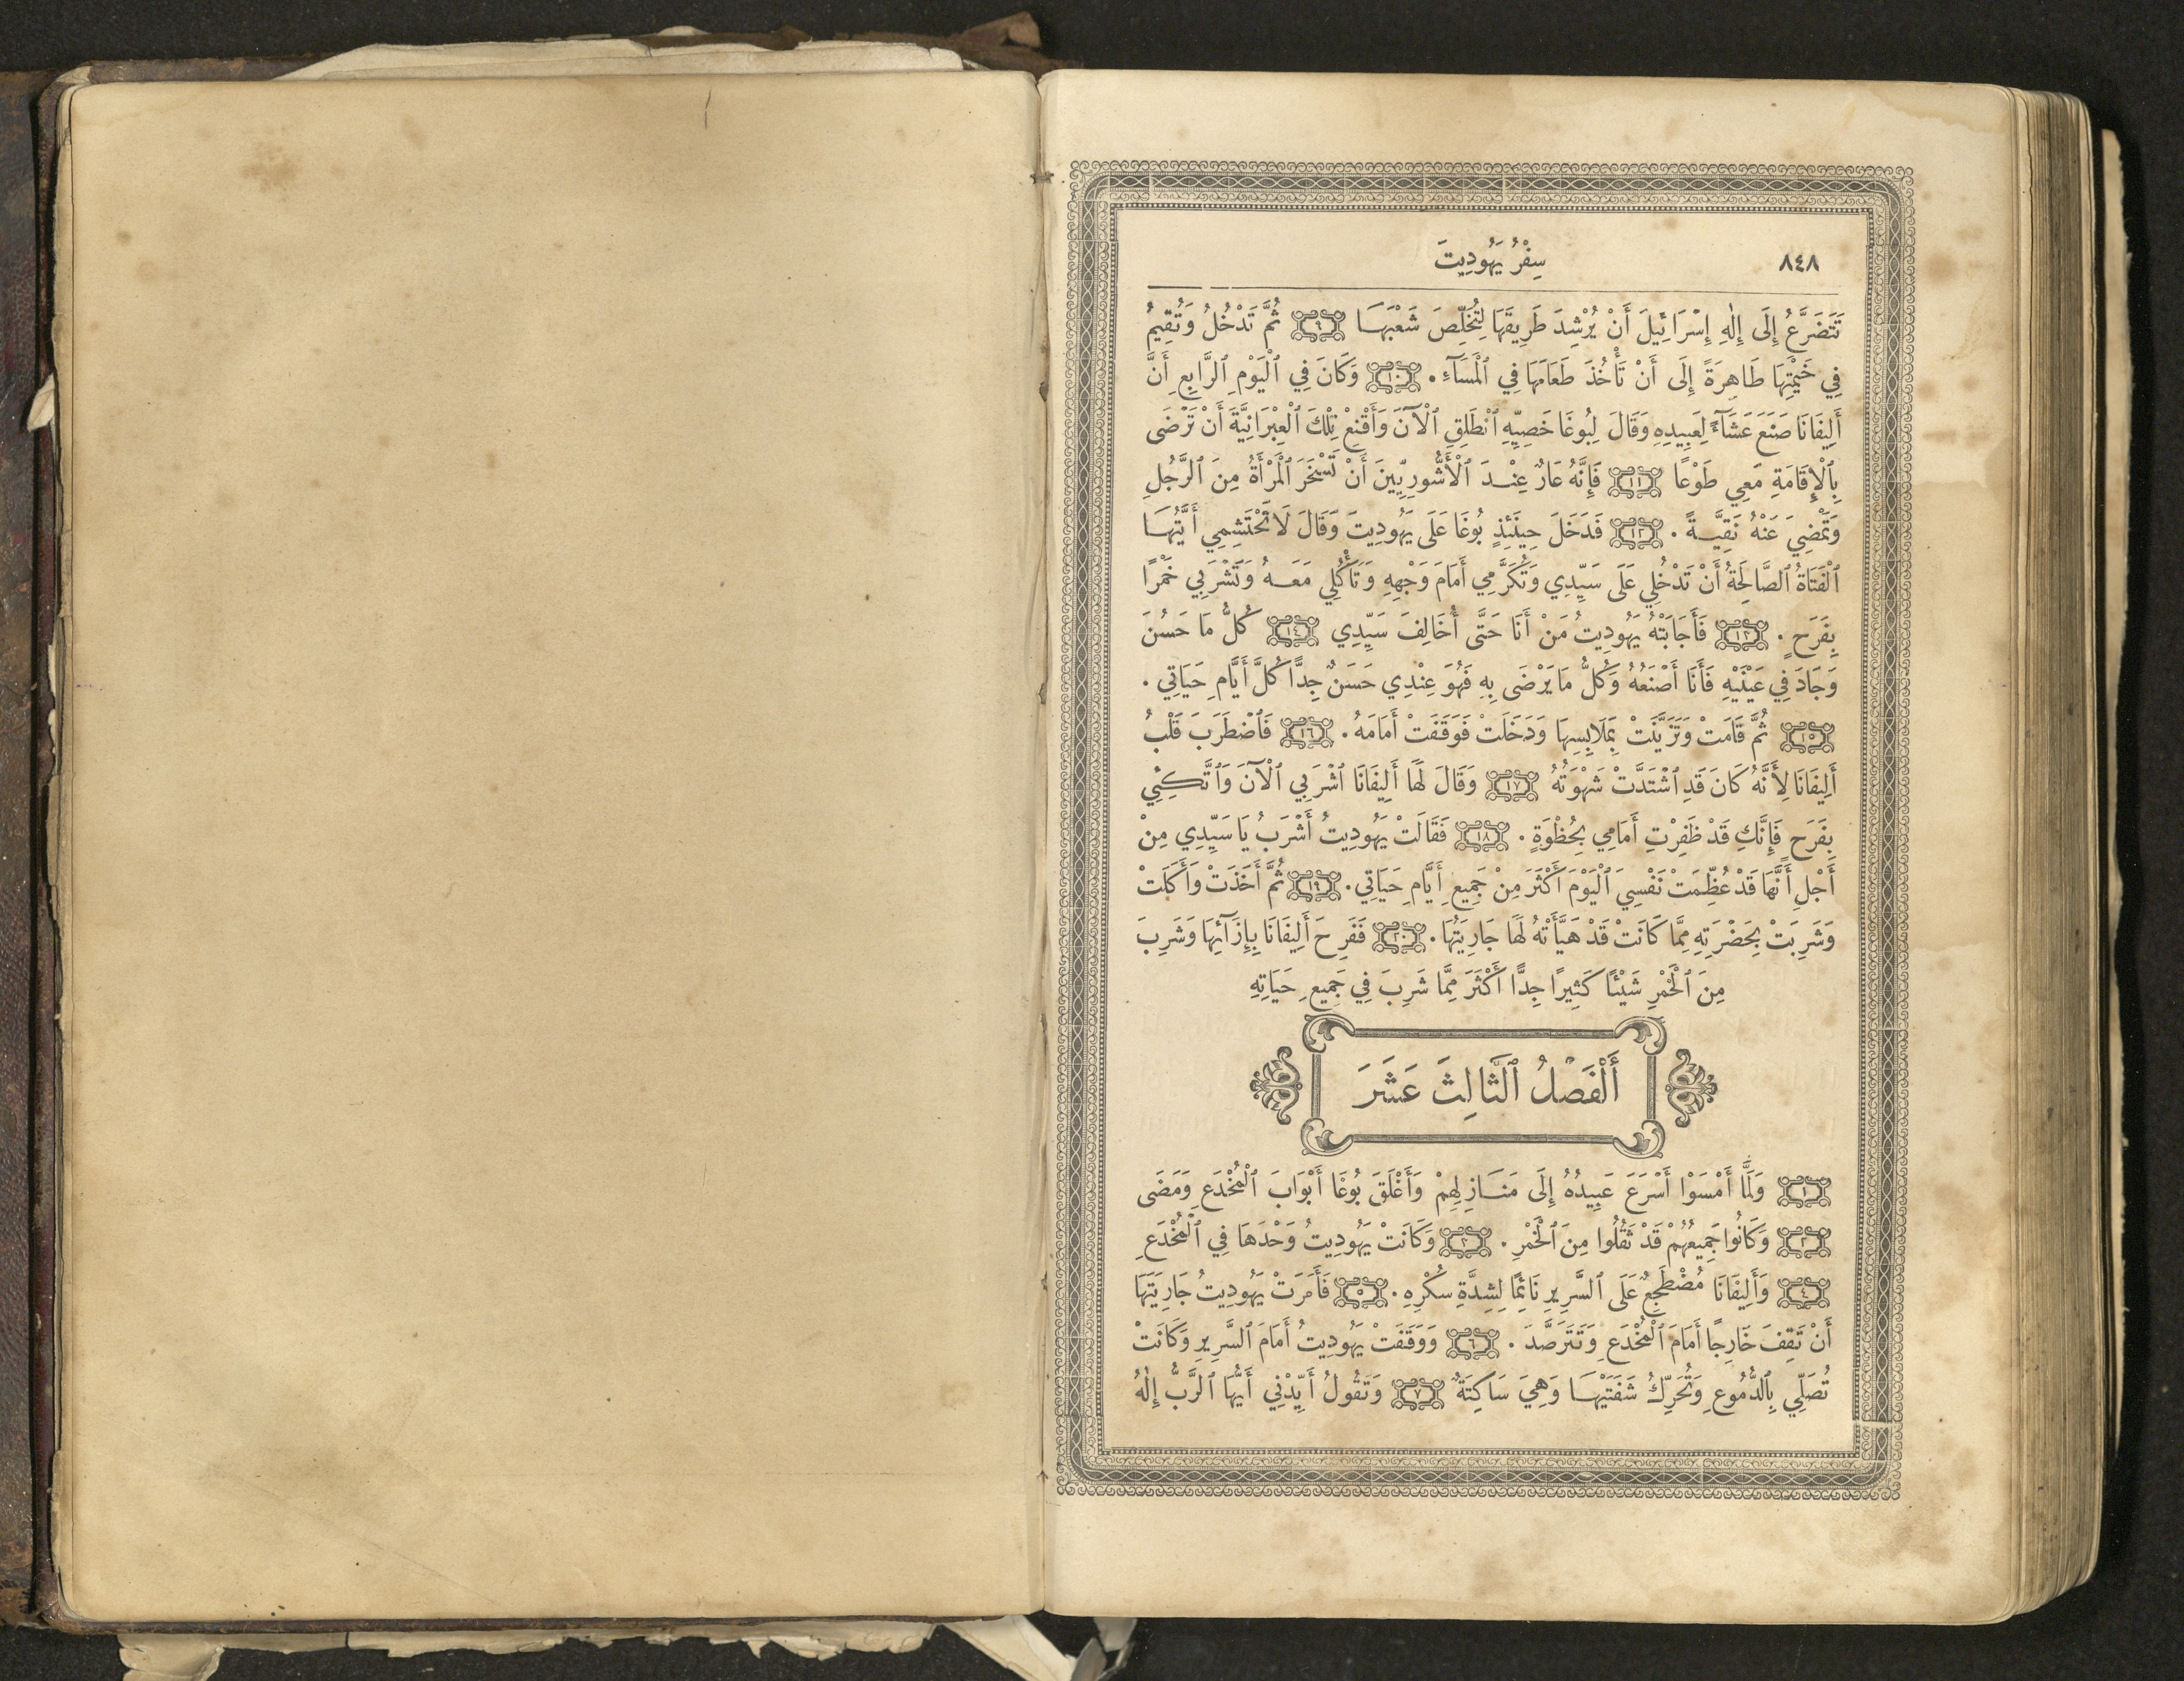 ٨٤٨ سِفْرُ يَهُودِيتَ
تَتَضَرَّعُ إِلَى إِلٰهِ إِسْرَائِيلَ أَنْ يُرْشِدَ طَرِيقَهَا لِتُخَلِّصَ شَعْبَهَا ٩ ثُمَّ تَدْخُلُ وَتُقِيمُ
فِي خَيْمَتِهَا طَاهِرَةً إِلَى أَنْ تَأْخُذَ طَعَامَهَا فِي ٱلْمَسَآءِ. ١٠ وَكَانَ فِي ٱلْيَوْمِ ٱلرَّابِعِ أَنَّ
أَلِيفَانَا صَنَعَ عَشَآءً لِعَبِيدِهِ وَقَالَ لِبُوغَا خَصِيِّهِ ٱنْطَلِقِ ٱلْآنَ وَأَقْنِعْ تِلْكَ ٱلْعِبْرَانِيَّةَ أَنْ تَرْضَى
بِٱلْإِقَامَةِ مَعِي طَوْعًا ١١ فَإِنَّهُ عَارٌ عِنْدَ ٱلْأَشُّورِيِّينَ أَنْ تَسْخَرَ ٱلْمَرْأَةُ مِنَ ٱلرَّجُلِ
وَتَمْضِيَ عَنْهُ نَقِيَّةً. ١٢ فَدَخَلَ حِينَئِذٍ بُوغَا عَلَى يَهُودِيتَ وَقَالَ لَا تَحْتَشِمِي أَيَّتُهَا
ٱلْفَتَاةُ ٱلصَّالِحَةُ أَنْ تَدْخُلِي عَلَى سَيِّدِي وَتُكَرَّمِي أَمَامَ وَجْهِهِ وَتَأْكُلِي مَعَهُ وَتَشْرَبِي خَمْرًا
بِفَرَحٍ. ١٣ فَأَجَابَتْهُ يَهُودِيتُ مَنْ أَنَا حَتَّى أُخَالِفَ سَيِّدِي ١٤ كُلُّ مَا حَسُنَ
وَجَادَ فِي عَيْنَيْهِ فَأَنَا أَصْنَعُهُ وَكُلُّ مَا يَرْضَى بِهِ فَهُوَ عِنْدِي حَسَنٌ جِدًّا كُلَّ أَيَّامِ حَيَاتِي.
١٥ ثُمَّ قَامَتْ وَتَزَيَّنَتْ بِمَلَابِسِهَا وَدَخَلَتْ فَوَقَفَتْ أَمَامَهُ. ١٦ فَٱضْطَرَبَ قَلْبُ
أَلِيفَانَا لِأَنَّهُ كَانَ قَدِ ٱشْتَدَّتْ شَهْوَتُهُ ١٧ وَقَالَ لَهَا أَلِيفَانَا ٱشْرَبِي ٱلْآنَ وَٱتَّكِئِي
بِفَرَحٍ فَإِنَّكِ قَدْ ظَفِرْتِ أَمَامِي بِحُظْوَةٍ. ١٨ فَقَالَتْ يَهُودِيتُ أَشْرَبُ يَا سَيِّدِي مِنْ
أَجْلِ أَنَّهَا قَدْ عُظِّمَتْ نَفْسِيَ ٱلْيَوْمَ أَكْثَرَ مِنْ جَمِيعِ أَيَّامِ حَيَاتِي. ١٩ ثُمَّ أَخَذَتْ وَأَكَلَتْ
وَشَرِبَتْ بِحَضْرَتِهِ مِمَّا كَانَتْ قَدْ هَيَّأَتْهُ لَهَا جَارِيَتُهَا. ٢٠ فَفَرِحَ أَلِيفَانَا بِإِزَآئِهَا وَشَرِبَ
مِنَ ٱلْخَمْرِ شَيْئًا كَثِيرًا جِدًّا أَكْثَرَ مِمَّا شَرِبَ فِي جَمِيعِ حَيَاتِهِ
أَلْفَصْلُ ٱلثَّالِثَ عَشَرَ
١ وَلَمَّا أَمْسَوْا أَسْرَعَ عَبِيدُهُ إِلَى مَنَازِلِهِمْ وَأَغْلَقَ بُوغَا أَبْوَابَ ٱلْمُخْدَعِ وَمَضَى
٢ وَكَانُوا جَمِيعُهُمْ قَدْ ثَقُلُوا مِنَ ٱلْخَمْرِ. ٣ وَكَانَتْ يَهُودِيتُ وَحْدَهَا فِي ٱلْمُخْدَعِ
٤ وَأَلِيفَانَا مُضْطَجِعٌ عَلَى ٱلسَّرِيرِ نَائِمًا لِشِدَّةِ سُكْرِهِ. ٥ فَأَمَرَتْ يَهُودِيتُ جَارِيَتَهَا
أَنْ تَقِفَ خَارِجًا أَمَامَ ٱلْمُخْدَعِ وَتَتَرَصَّدَ. ٦ وَوَقَفَتْ يَهُودِيتُ أَمَامَ ٱلسَّرِيرِ وَكَانَتْ
تُصَلِّي بِٱلدُّمُوعِ وَتُحَرِّكُ شَفَتَيْهَا وَهِيَ سَاكِتَةٌ ٧ وَتَقُولُ أَيِّدْنِي أَيُّهَا ٱلرَّبُّ إِلٰهُ